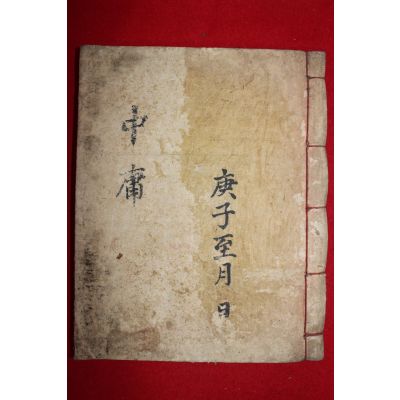 庚子至月 日
中庸